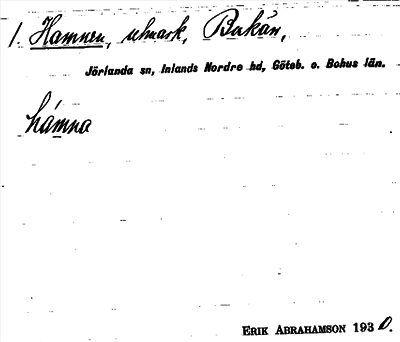 1. Hamnen, utmark, Bakån,
Jörlanda sn, Inlands Nordre hd, Göteb. o. Bohus län.
hámna
ERIK ABRAHAMSON 1930.